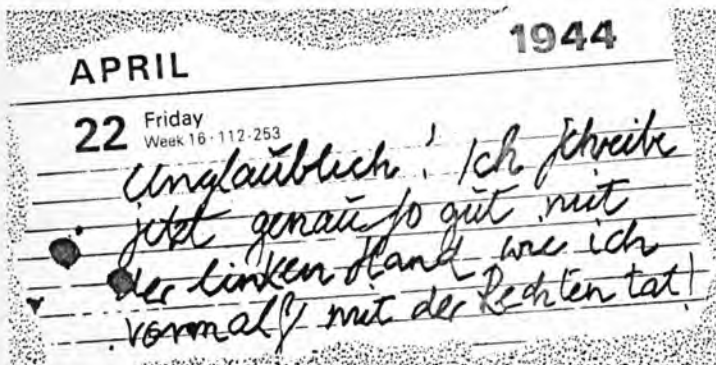 APRIL 1944
22 Friday
Week 16 · 112-253
Unglaüblich! Ich schreibe
jetzt genaü so güt mit
der linken Hand wie ich
vormals mit der Rechten tat!